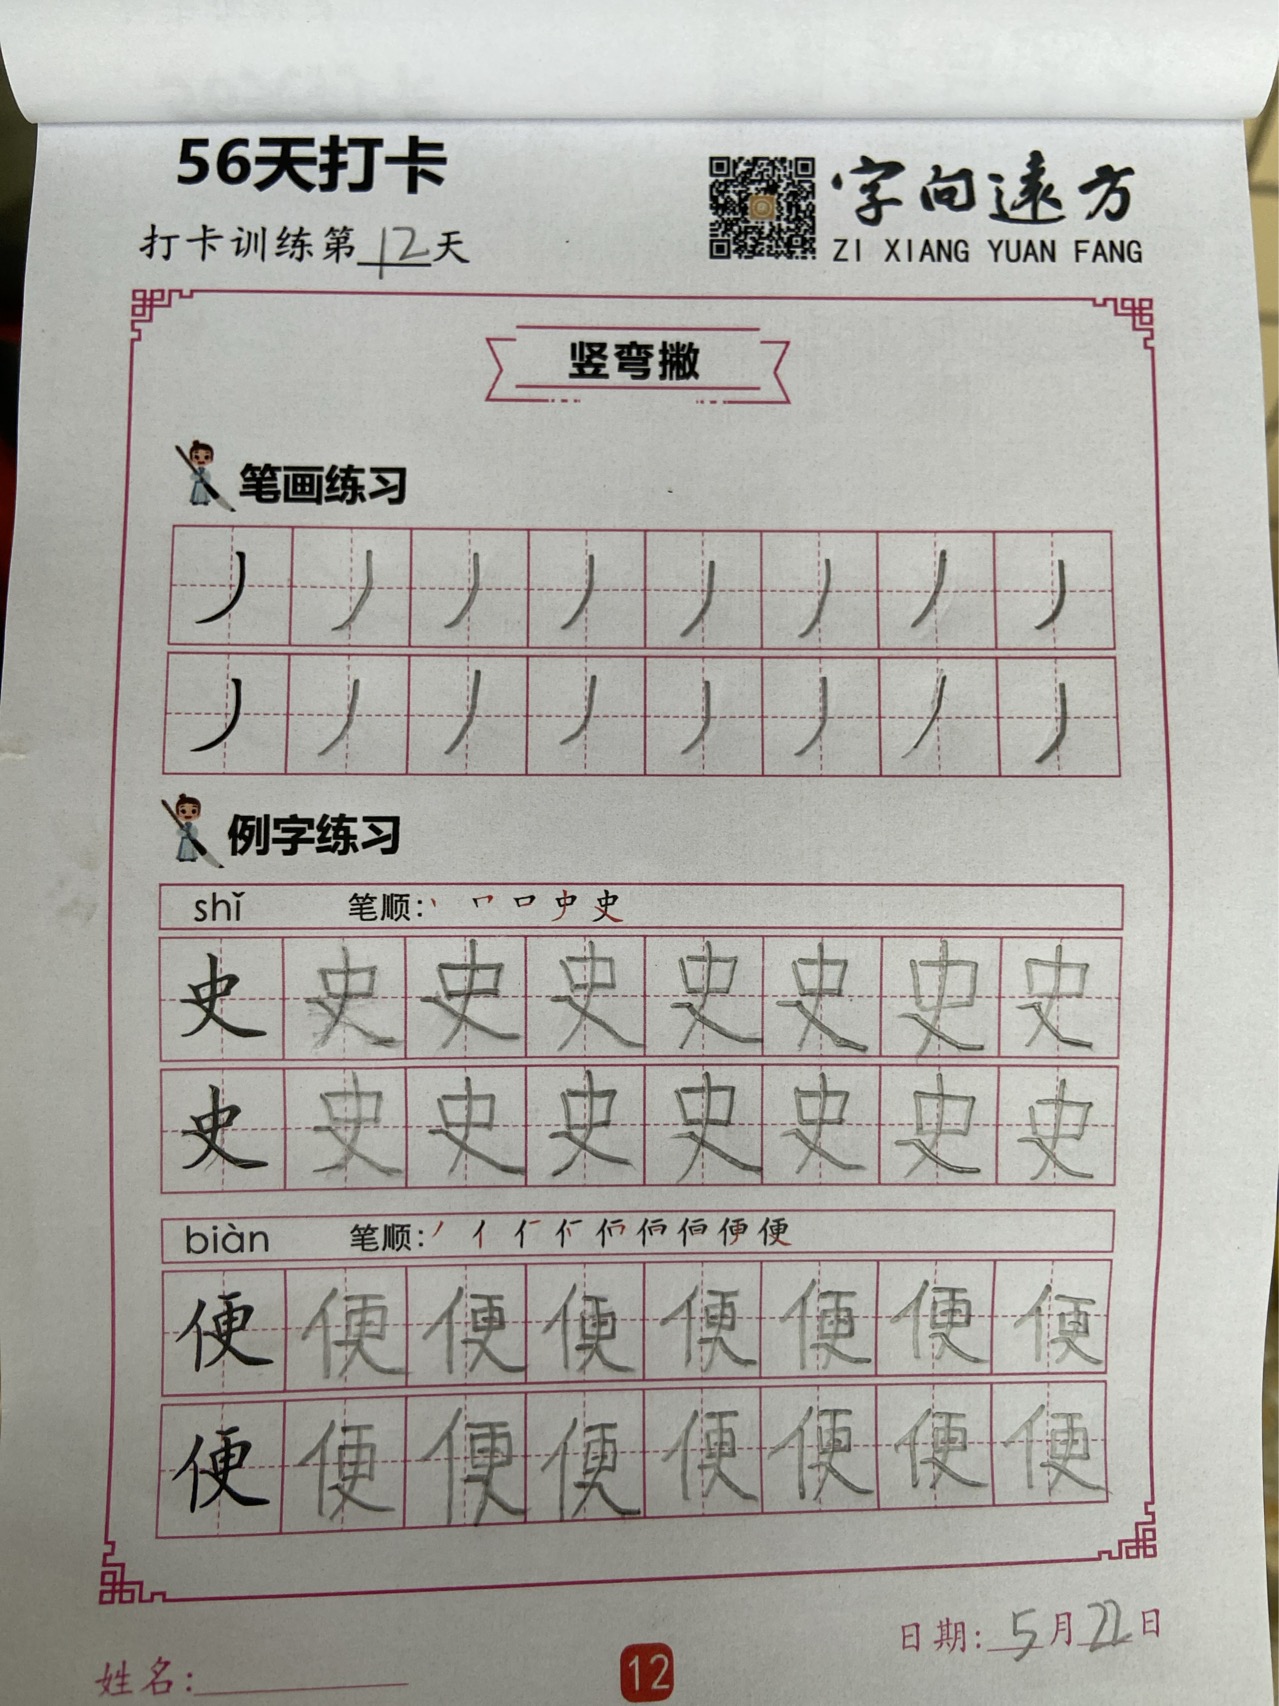 56天打卡
字向遠方
打卡训练第12天
ZI XIANG YUAN FANG
竖弯撇
笔画练习
丿丿丿丿丿丿丿丿
丿丿丿丿丿丿丿丿
例字练习
shǐ 笔顺：丶 口 史
史史史史史史史史
史史史史史史史史
biàn 笔顺：丿 亻 便
便便便便便便便便
便便便便便便便便
日期：5月22日
姓名：
12